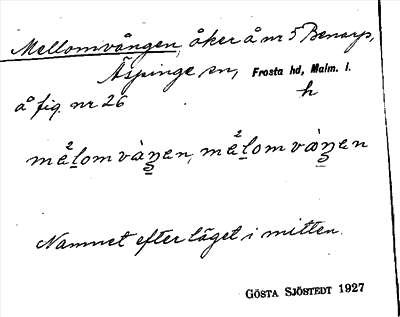 Mellomvången, åker å nr 5 Benarp,
Äspinge sn, Frosta hd, Malm. l.
å fig. nr 26 h
me²l̲omvàŋen, me²l̲omvàŋen
Namnet efter läget i mitten.
GÖSTA SJÖSTEDT 1927